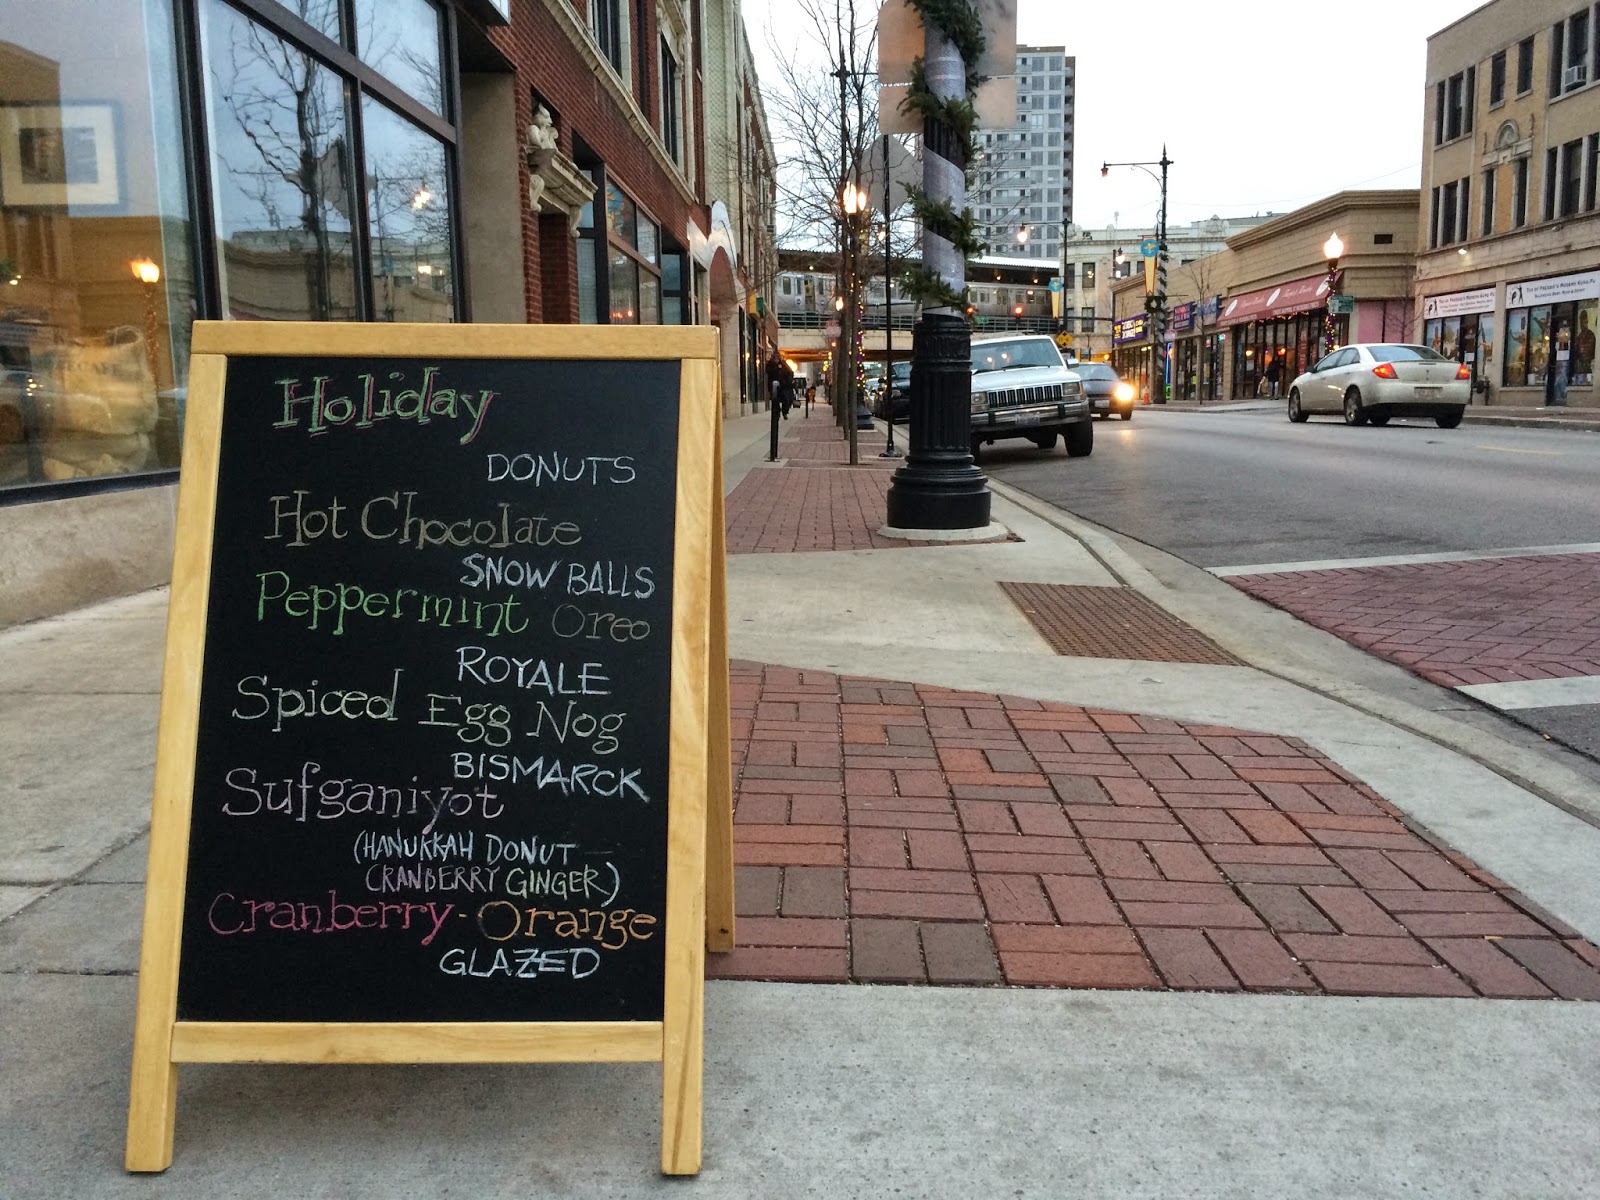 Holiday
DONUTS
Hot Chocolate
SNOW BALLS
Peppermint Oreo
ROYALE
Spiced Egg Nog
BISMARCK
Sufganiyot
(HANUKKAH DONUT—
CRANBERRY GINGER)
Cranberry-Orange
GLAZED